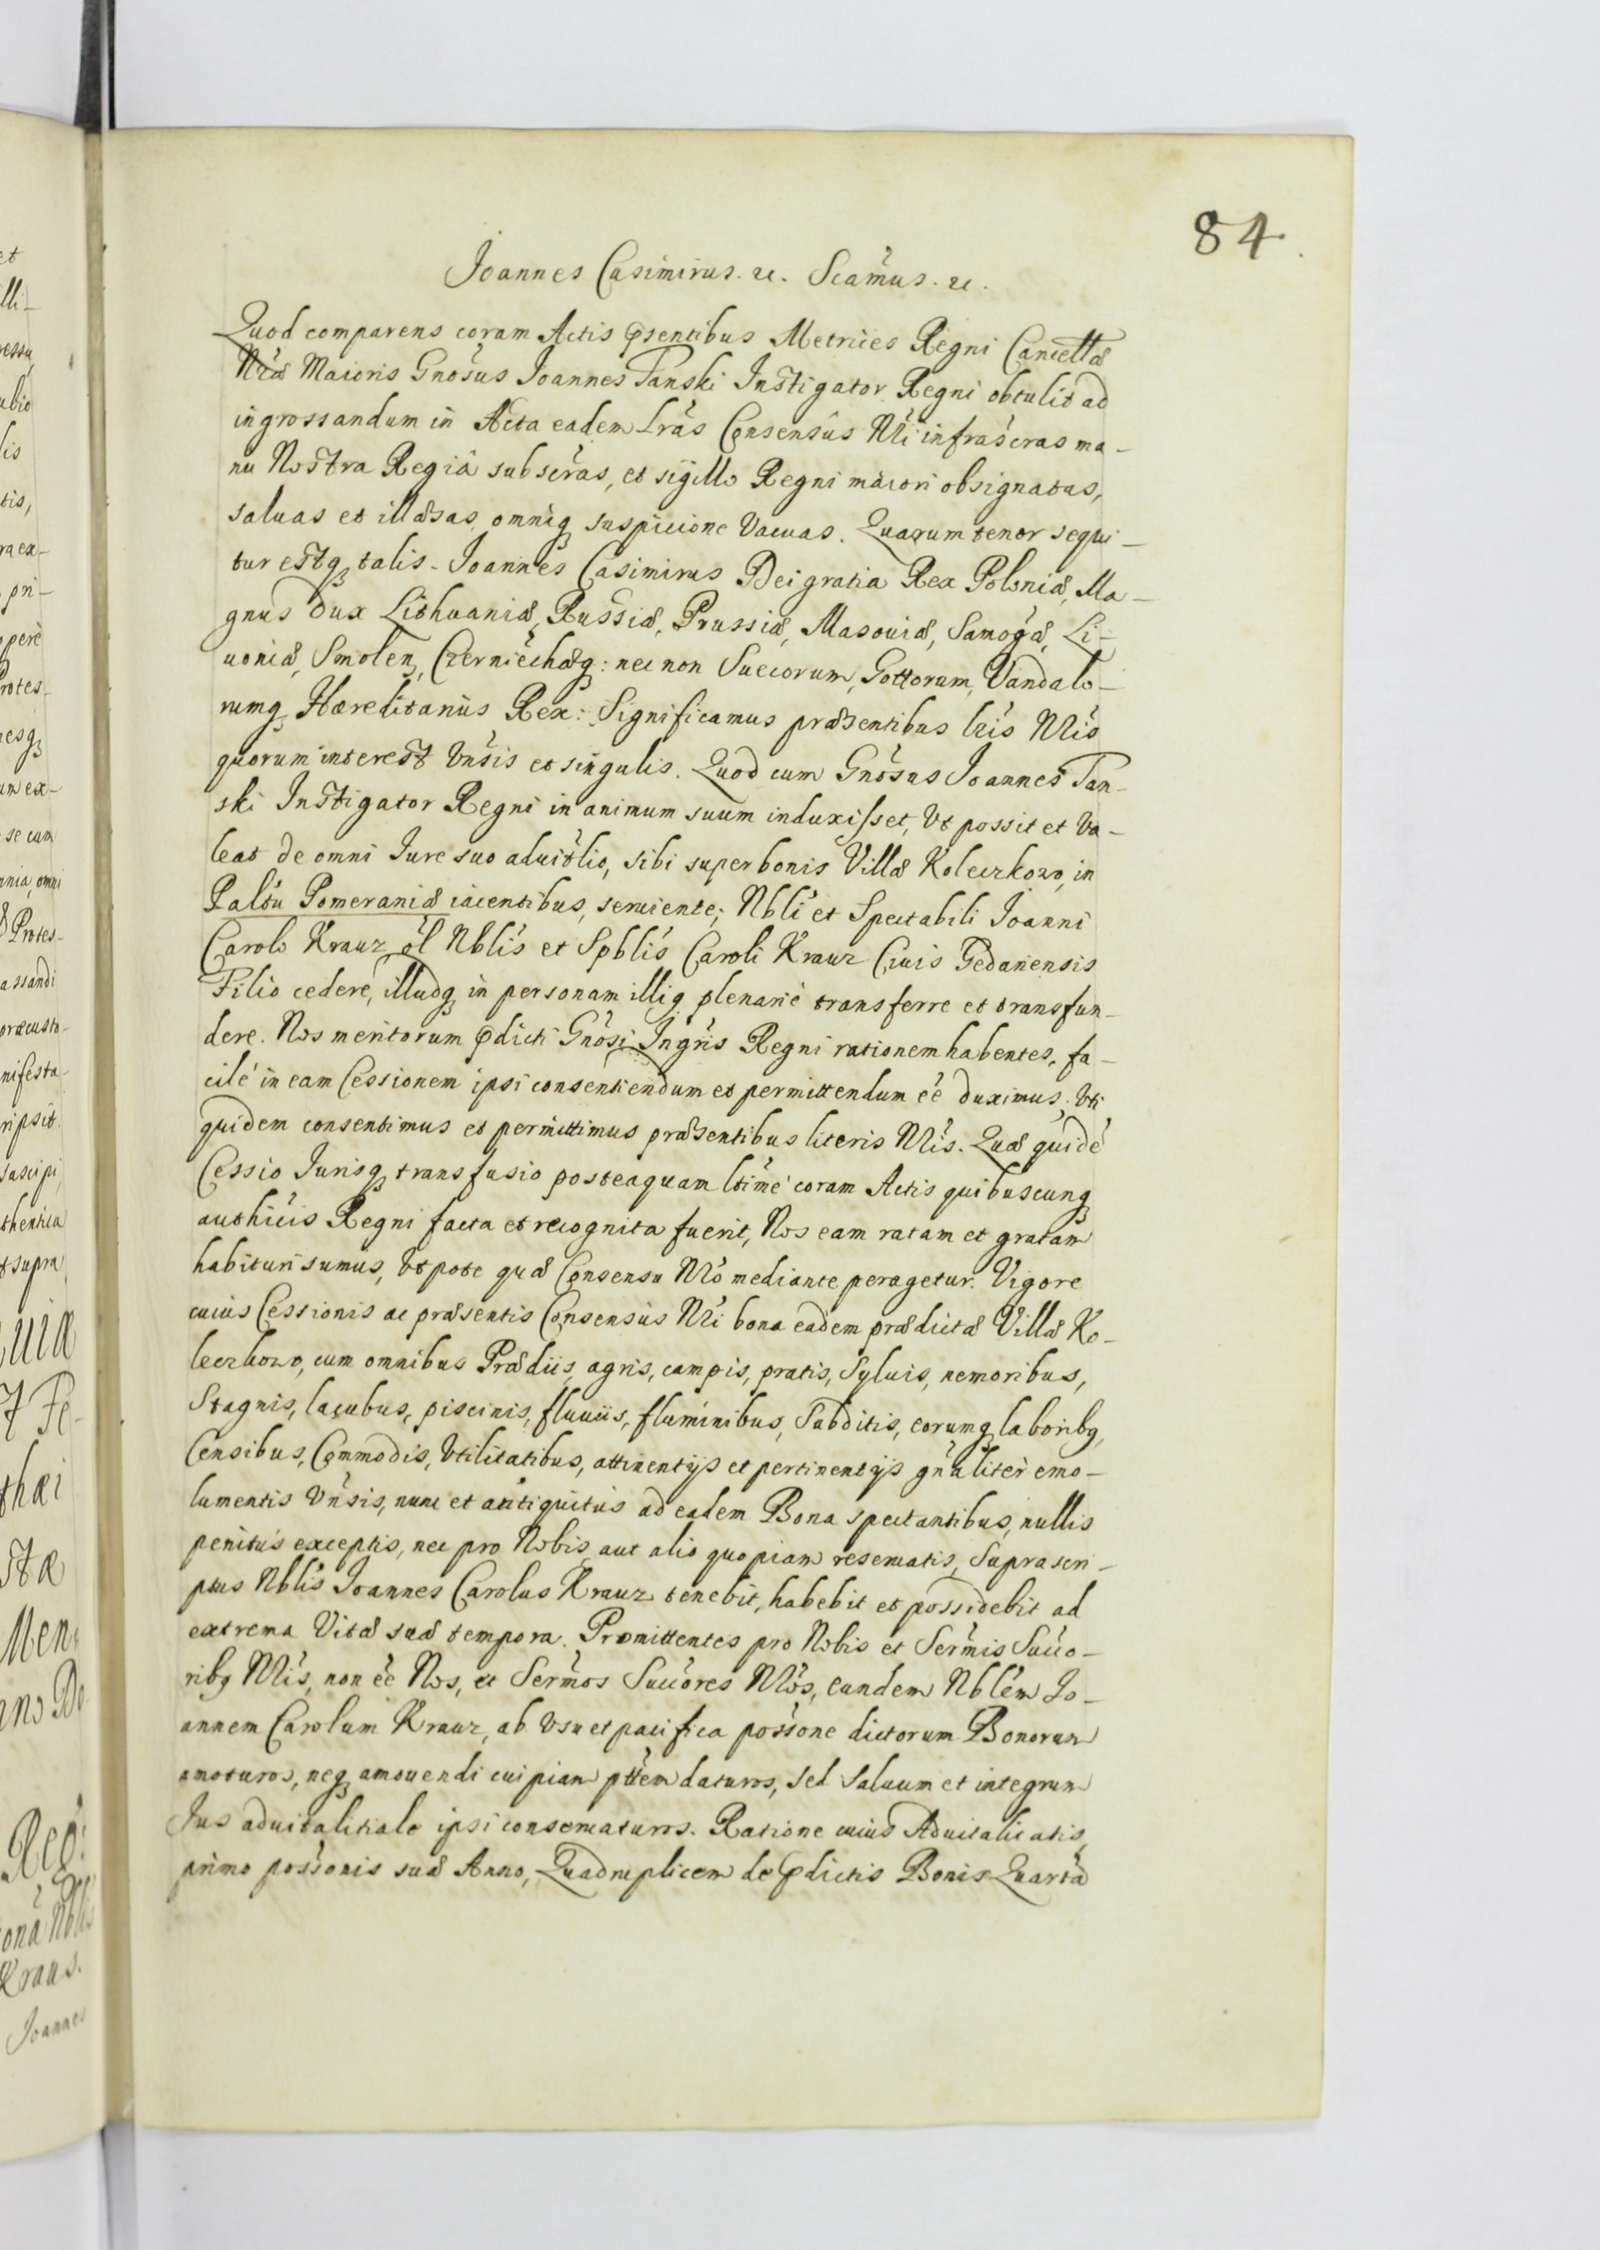 84
Joannes Casimirus. &c. Scamus. &c.
Quod comparens coram Actis p̄sentibus Metrices Regni Cancellæ
Nræ Maioris Gnosus Joannes Tanski Instigator Regni obtulit ad
ingrossandum in Acta eadem Lras Consensûs Nri infrascras ma-
nu Nostra Regiâ subscras, et sigillo Regni maiori obsignatas,
saluas et illæsas omniq; suspicione vacuas. Quarum tenor sequi-
tur estq; talis. Joannes Casimirus Dei gratia Rex Poloniæ, Ma-
gnus Dux Lithuaniæ, Russiæ, Prussiæ, Masouiæ, Samogæ, Li-
uoniæ, Smolen, Czerniechæq: nec non Suecorum, Gottorum, Vandalo-
rumq; Hæreditarius Rex: Significamus præsentibus lris Nris
quorum interest Vnsis et singulis. Quod cum Gnosus Joannes Tan-
ski Instigator Regni in animum suum induxisset, Vt possit et Va-
leat de omni Iure suo aduitlio, sibi super bonis Villæ Koleczkowo, in
Paltu Pomeraniæ iacentibus, seruiente; Nbli et Spectabili Joanni
Carolo Krauz ol Nblis et Spblis Caroli Krauz Ciuis Gedanensis
Filio cedere, illudq; in personam illiq; plenariè transferre et transfun-
dere. Nos meritorum p̄dicti Gnosi Ingris Regni rationem habentes, fa-
cilè in eam Cessionem ipsi consentiendum et permittendum ee duximus, Vti
quidem consentimus et permittimus præsentibus literis Nris. Quæ quide
Cessio Iurisq; transfusio posteaquam ltime coram Actis quibuscunq;
authicis Regni facta et recognita fuerit, Nos eam ratam et gratam
habituri sumus, Vt pote quæ Consensu Nro mediante peragetur. Vigore
cuius Cessionis ac præsentis Consensûs Nri bona eadem prædictæ Villæ Ko-
leczkowo, cum omnibus Prædiis, agris, campis, pratis, Syluis, nemoribus,
Stagnis, lacubus, piscinis, fluuiis, fluminibus, Subditis, eorumq; laboribq;,
Censibus, Commodis, Vtilitatibus, attinentijs et pertinentijs gnaliter emo-
lumentis Vnsis, nunc et antiquitus ad eadem Bona spectantibus, nullis
penitus exceptis, nec pro Nobis aut alio quopiam reseruatis, Suprascri-
ptus Nblis Joannes Carolus Krauz tenebit, habebit et possidebit ad
extrema Vitæ suæ tempora. Promittentes pro Nobis et Sermis Succo-
ribq; Nris, non ee Nos, et Sermos Succores Nros, eundem Nblem Jo-
annem Carolum Krauz, ab Vsu et pacifica possone dictorum Bonorum
amoturos, neq; amouendi cuipiam pttem daturos, sed saluum et integrum
Jus aduitalitiale ipsi conseruaturos. Ratione cuius Aduitalitatis,
primo possonis suæ Anno, Quadruplicem de p̄dictis Bonis Quartã